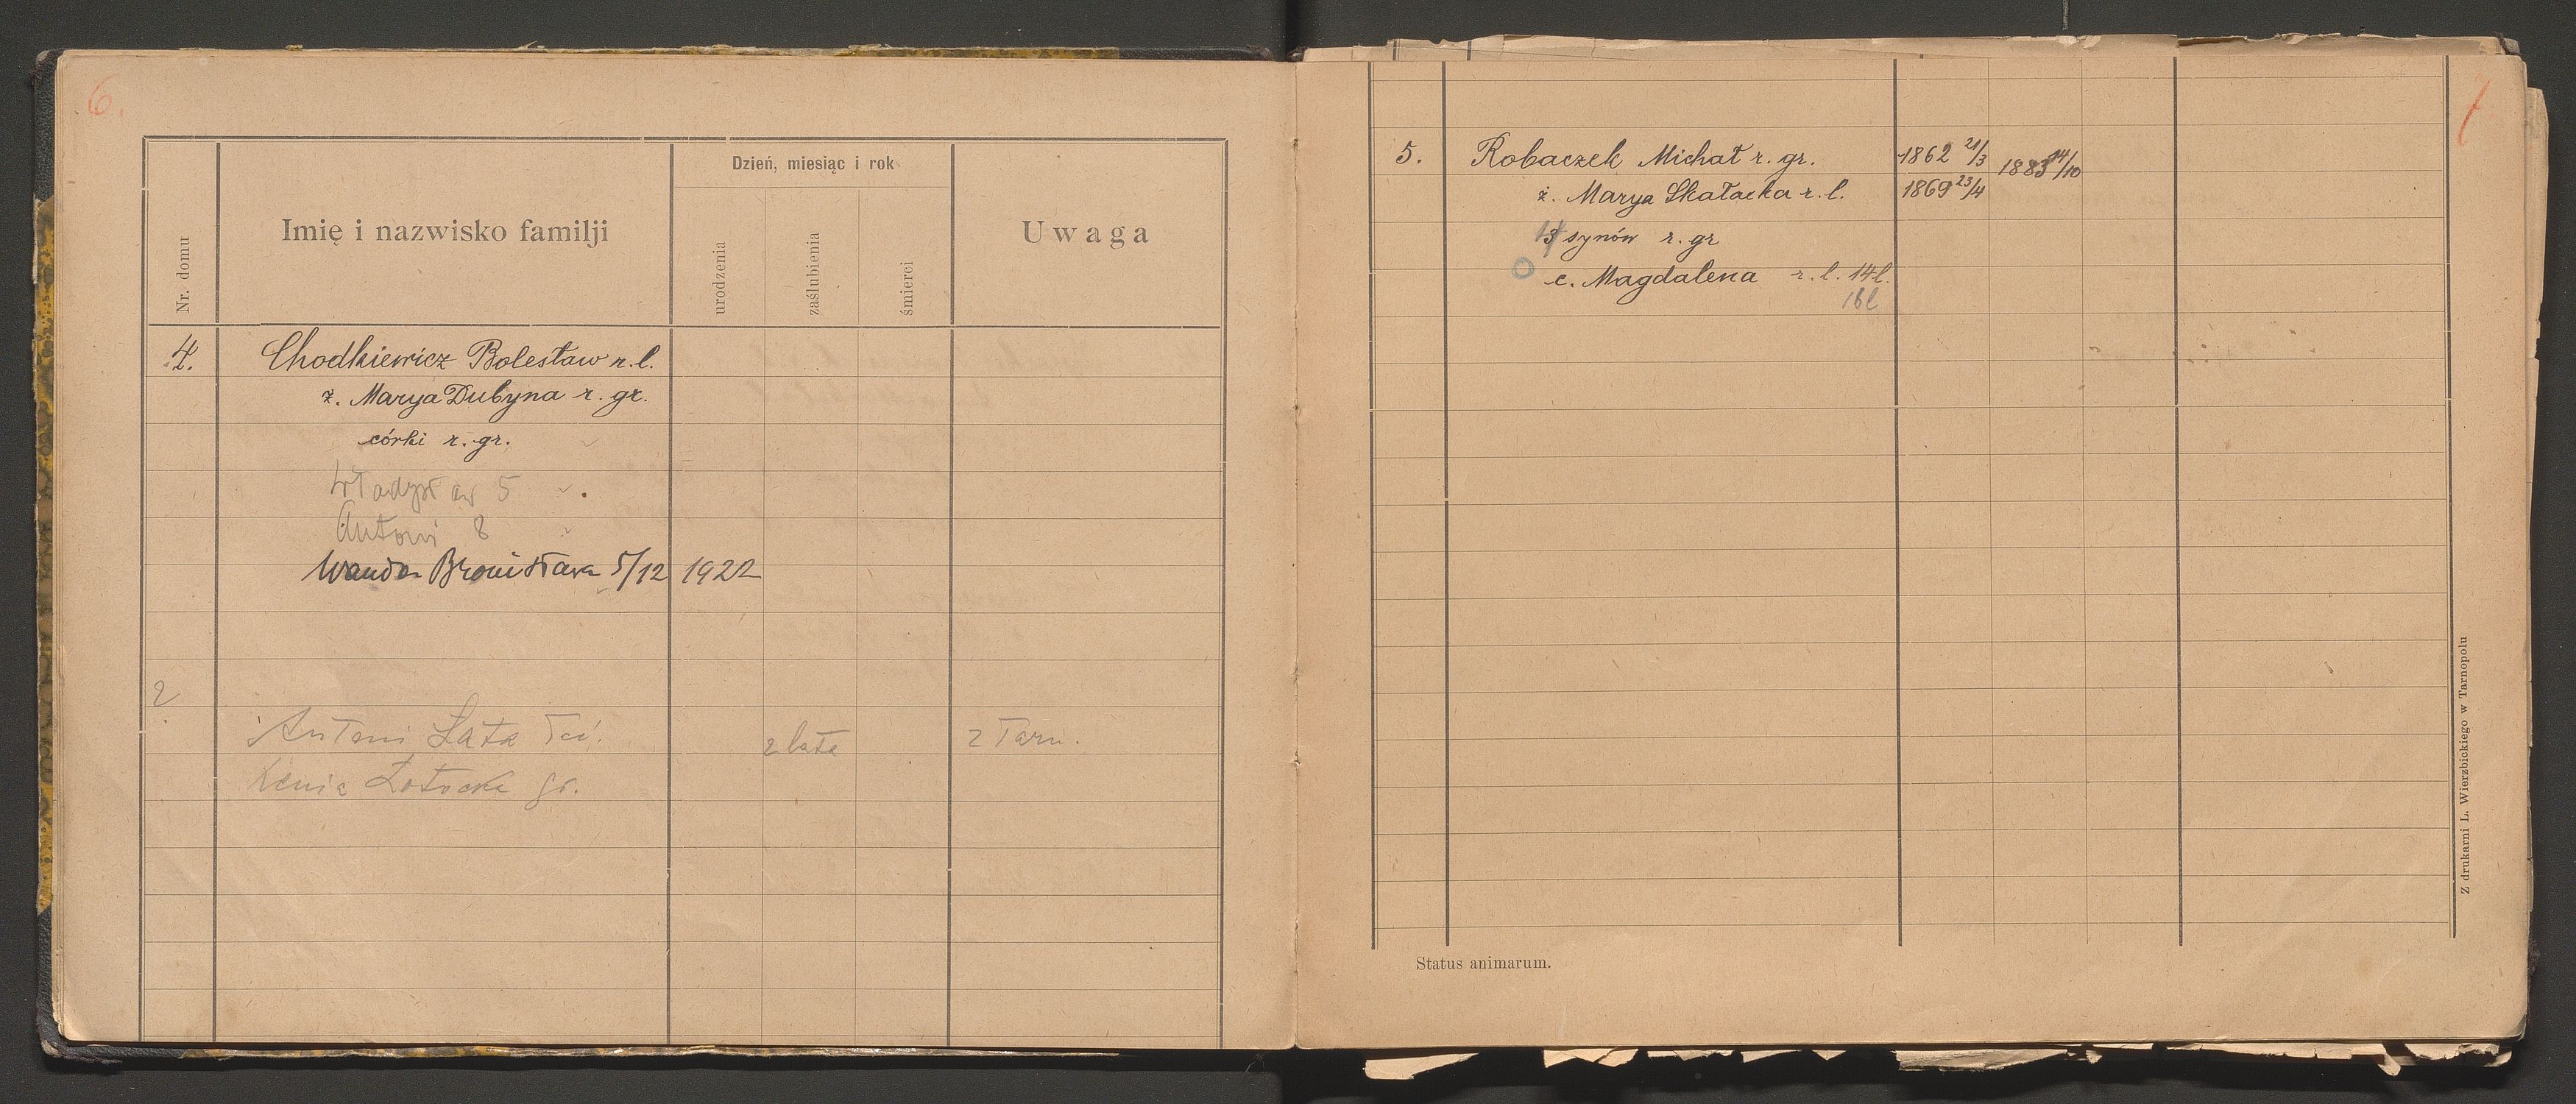 6.
Nr. domu
Imię i nazwisko familji
Dzień, miesiąc i rok
urodzenia
zaślubienia
śmierci
Uwaga
4. Chodkiewicz Bolesław r. l.
ż. Marya Dubyna r. gr.
córki r. gr.
Władysław 5
Antoni 8
Wanda Bronisława 5/12 1922
2
Antoni Łata łać. 2 lata z Tarn.
Kenia Łotocka gr.
7
5. Robaczek Michał r. gr. 1862 21/3 1883 14/10
ż. Marya Skałacka r. l. 1869 23/4
synów r. gr
c. Magdalena r. l. 14 l.
16 l
Status animarum.
Z drukarni L. Wierzbickiego w Tarnopolu